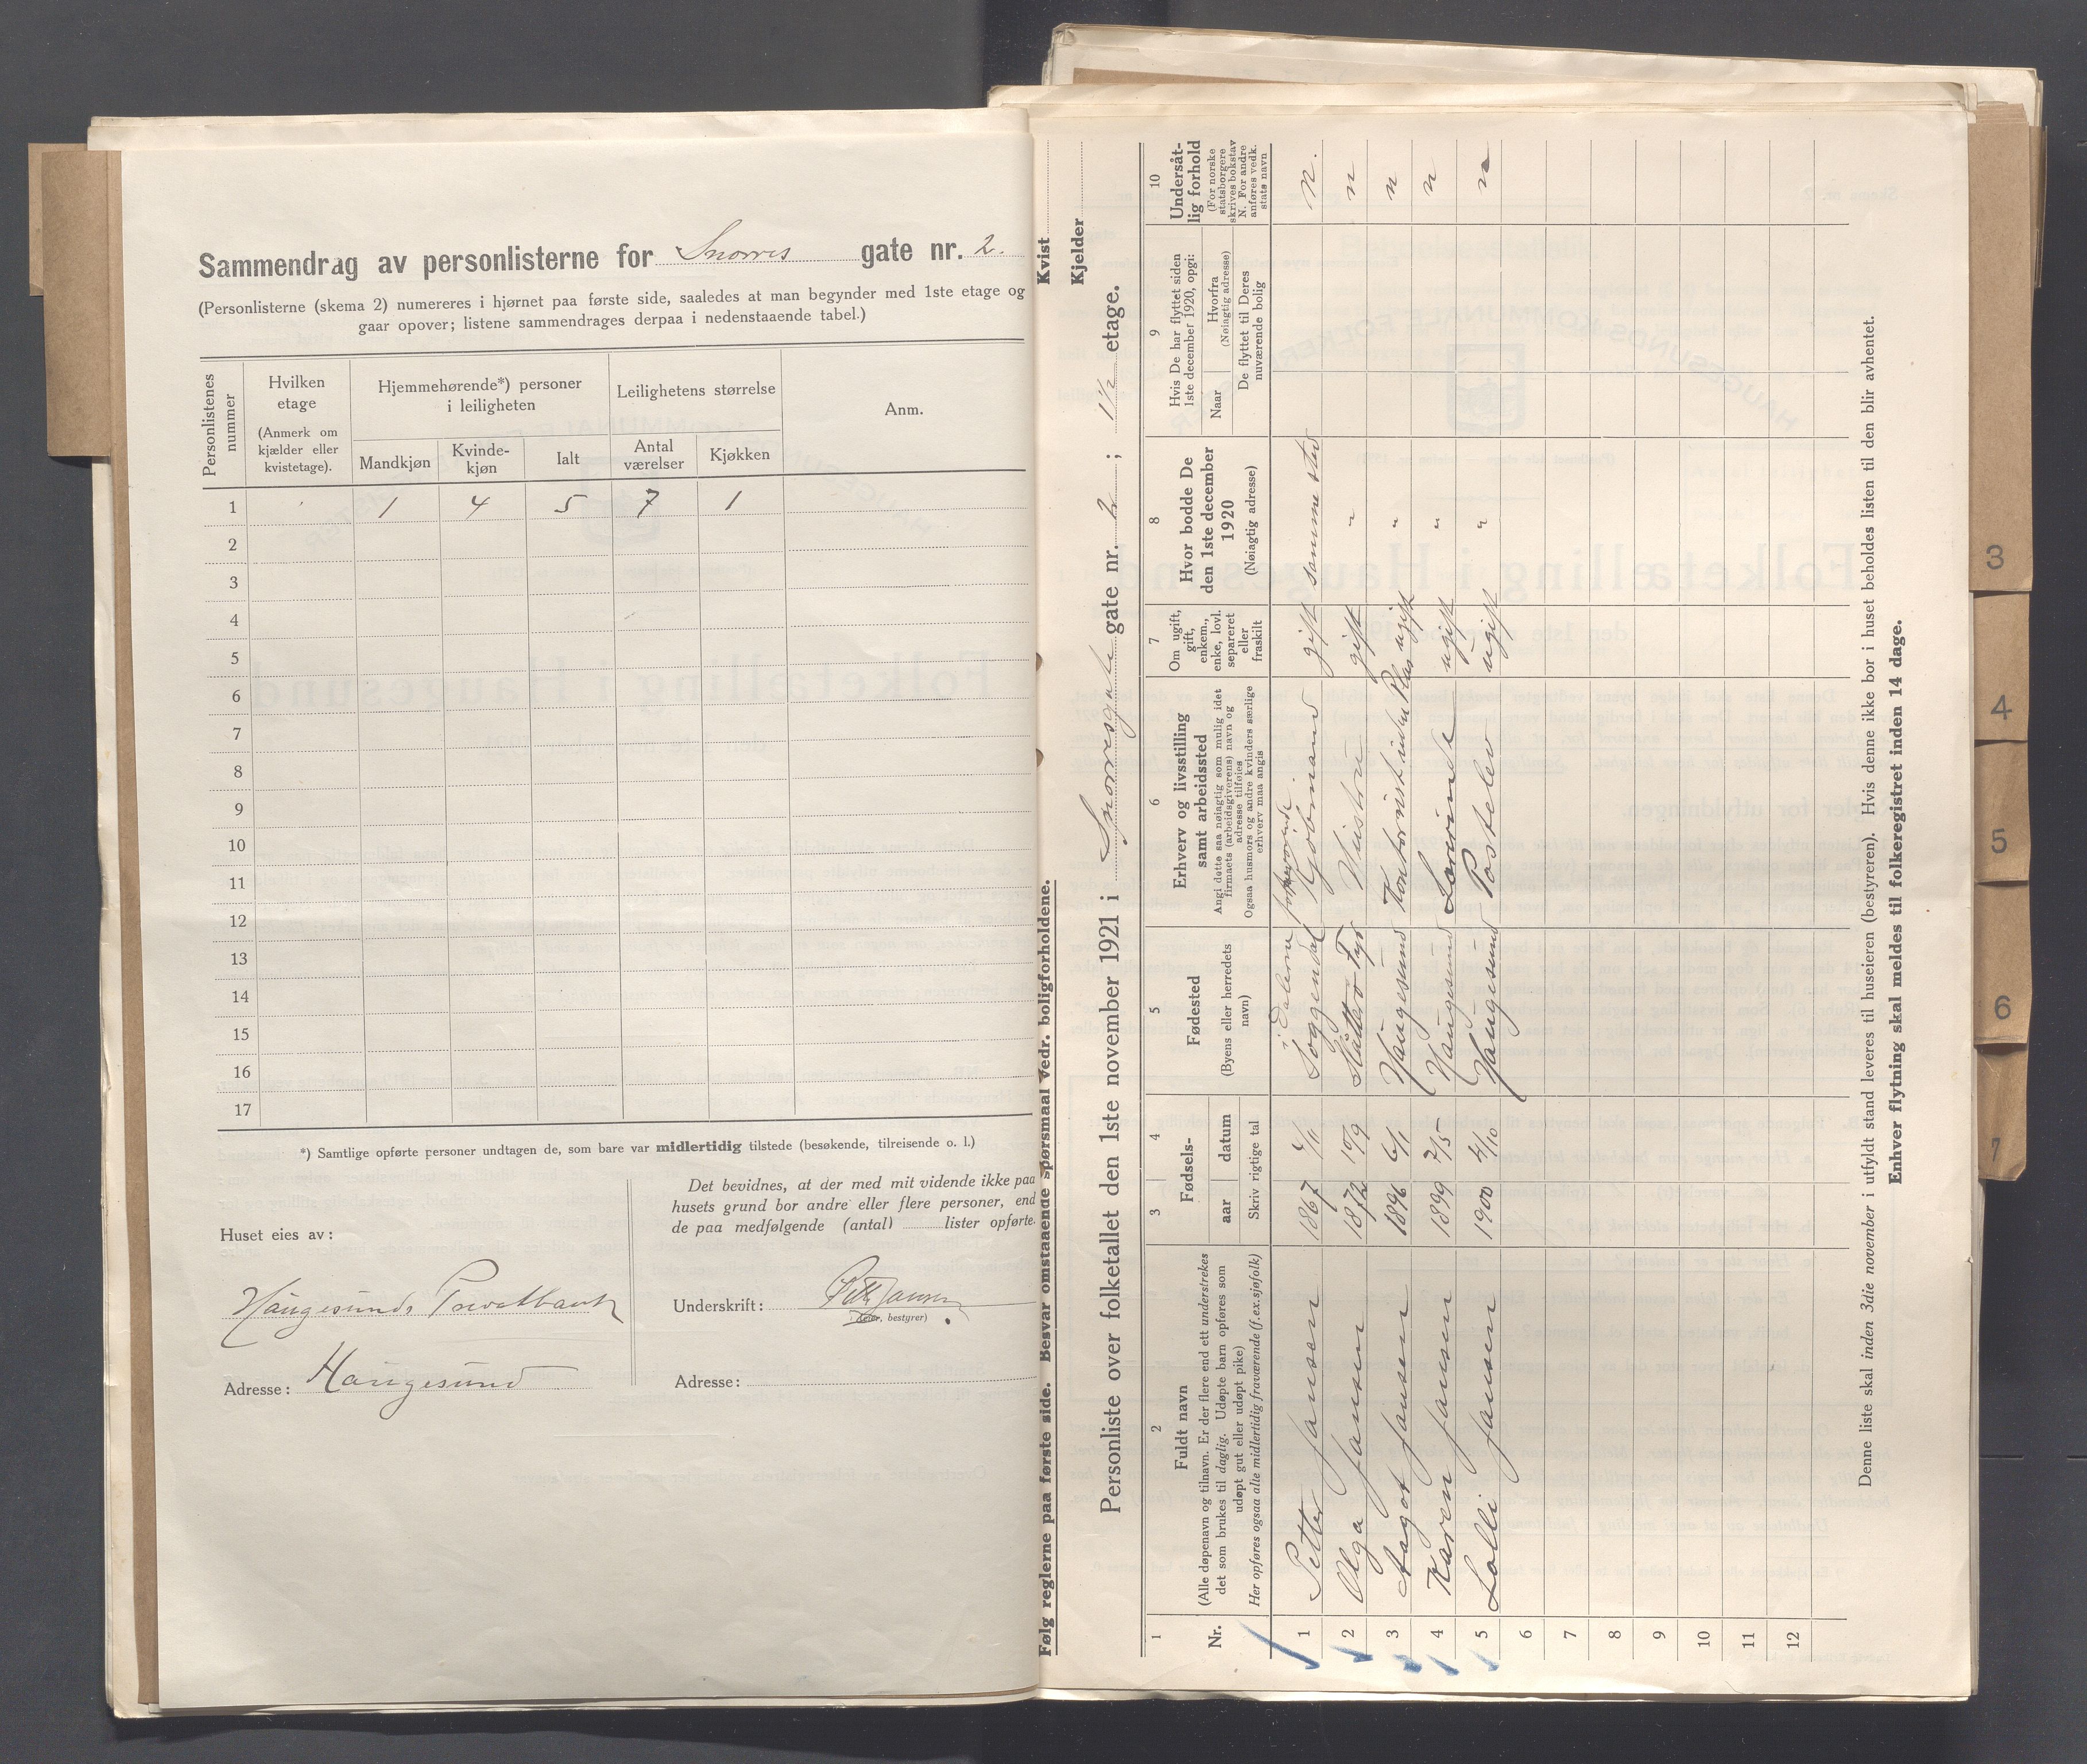 Sammendrag av personlisterne for Snorres gate nr. 2.
(Personlisterne (skema 2) numereres i hjørnet paa første side, saaledes at man begynder med 1ste etage og
gaar opover; listene sammendrages derpaa i nedenstaaende tabel.)
Personlistenes nummer
Hvilken etage
(Anmerk om kjælder eller kvistetage).
Hjemmehørende*) personer i leiligheten
Leilighetens størrelse
Anm.
Mandkjøn
Kvinde-kjøn
Ialt
Antal værelser
Kjøkken
1 1 4 5 7 1
2
3
4
5
6
7
8
9
10
11
12
13
14
15
16
17
*) Samtlige opførte personer undtagen de, som bare var midlertidig tilstede (besøkende, tilreisende o. l.)
Huset eies av:
Haugesunds Privatbank
Adresse: Haugesund
Det bevidnes, at der med mit vidende ikke paa
husets grund bor andre eller flere personer, end
de paa medfølgende (antal) lister opførte.
Underskrift: Jansen
(eier, bestyrer)
Adresse:
Følg reglerne paa første side. Besvar omstaaende spørsmaal vedr. boligforholdene.
Kvist
Kjelder
Personliste over folketallet den 1ste november 1921 i Snorresgate gate nr. 2; 1 1/2 etage.
1 2 3 4 5 6 7 8 9 10
Nr.
Fuldt navn
(Alle døpenavn og tilnavn. Er der flere end ett understrekes
det som brukes til daglig. Udøpte barn opføres som
udøpt gut eller udøpt pike)
Her opføres ogsaa alle midlertidig fraværende (f.ex.sjøfolk)
Fødsels-
aar
datum
Skriv rigtige tal
Fødested
(Byens eller herredets navn)
Erhverv og livsstilling
samt arbeidssted
Angi dette saa nøiagtig som mulig idet
firmaets (arbeidsgiverens) navn og
adresse tilføies
Ogsaa husmors og andre kvinders særlige
erhverv maa angis
Om ugift,
gift,
enkem.,
enke, lovl.
separeret
eller
fraskilt
Hvor bodde De
den 1ste december
1920
(Nøiagtig adresse)
Hvis De har flyttet siden
1ste december 1920, opgi:
Naar
Hvorfra
(Nøiagtig adresse)
De flyttet til Deres
nuværende bolig
Undersåt-
lig forhold
(For norske
statsborgere
skrives bokstav
N. For andre
anføres vedk.
stats navn
i Dalerne
1 Petter Jansen 1867 Soggendal Kjøbmand gift samme sted n.
2 Olga Jansen 1872 10/9 Fyr Hustru gift " n
3 Aagot Jansen 1896 6/1 Haugesund Kontorist ugift " n
4 Karen Jansen 1899 7/5 Haugesund ugift " n
5 Lolli Jansen 1900 4/10 Haugesund Postelev ugift " n
6
7
8
9
10
11
12
Denne liste skal inden 3die november i utfyldt stand leveres til huseieren (bestyreren). Hvis denne ikke bor i huset beholdes listen til den blir avhentet.
Enhver flytning skal meldes til folkeregistret inden 14 dage.
3
4
5
6
7